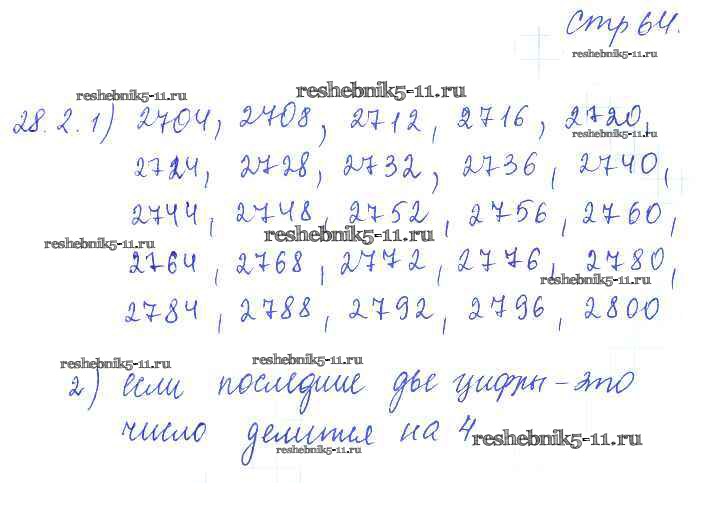 стр 64.
reshebnik5-11.ru
reshebnik5-11.ru reshebnik5-11.ru
28.2.1) 2704, 2708, 2712, 2716, 2720,
reshebnik5-11.ru
2724, 2728, 2732, 2736, 2740,
2744, 2748, 2752, 2756, 2760,
reshebnik5-11.ru reshebnik5-11.ru
2764, 2768, 2772, 2776, 2780,
reshebnik5-11.ru
2784, 2788, 2792, 2796, 2800
reshebnik5-11.ru reshebnik5-11.ru
2) если последние две цифры - это
число делится на 4
reshebnik5-11.ru
reshebnik5-11.ru